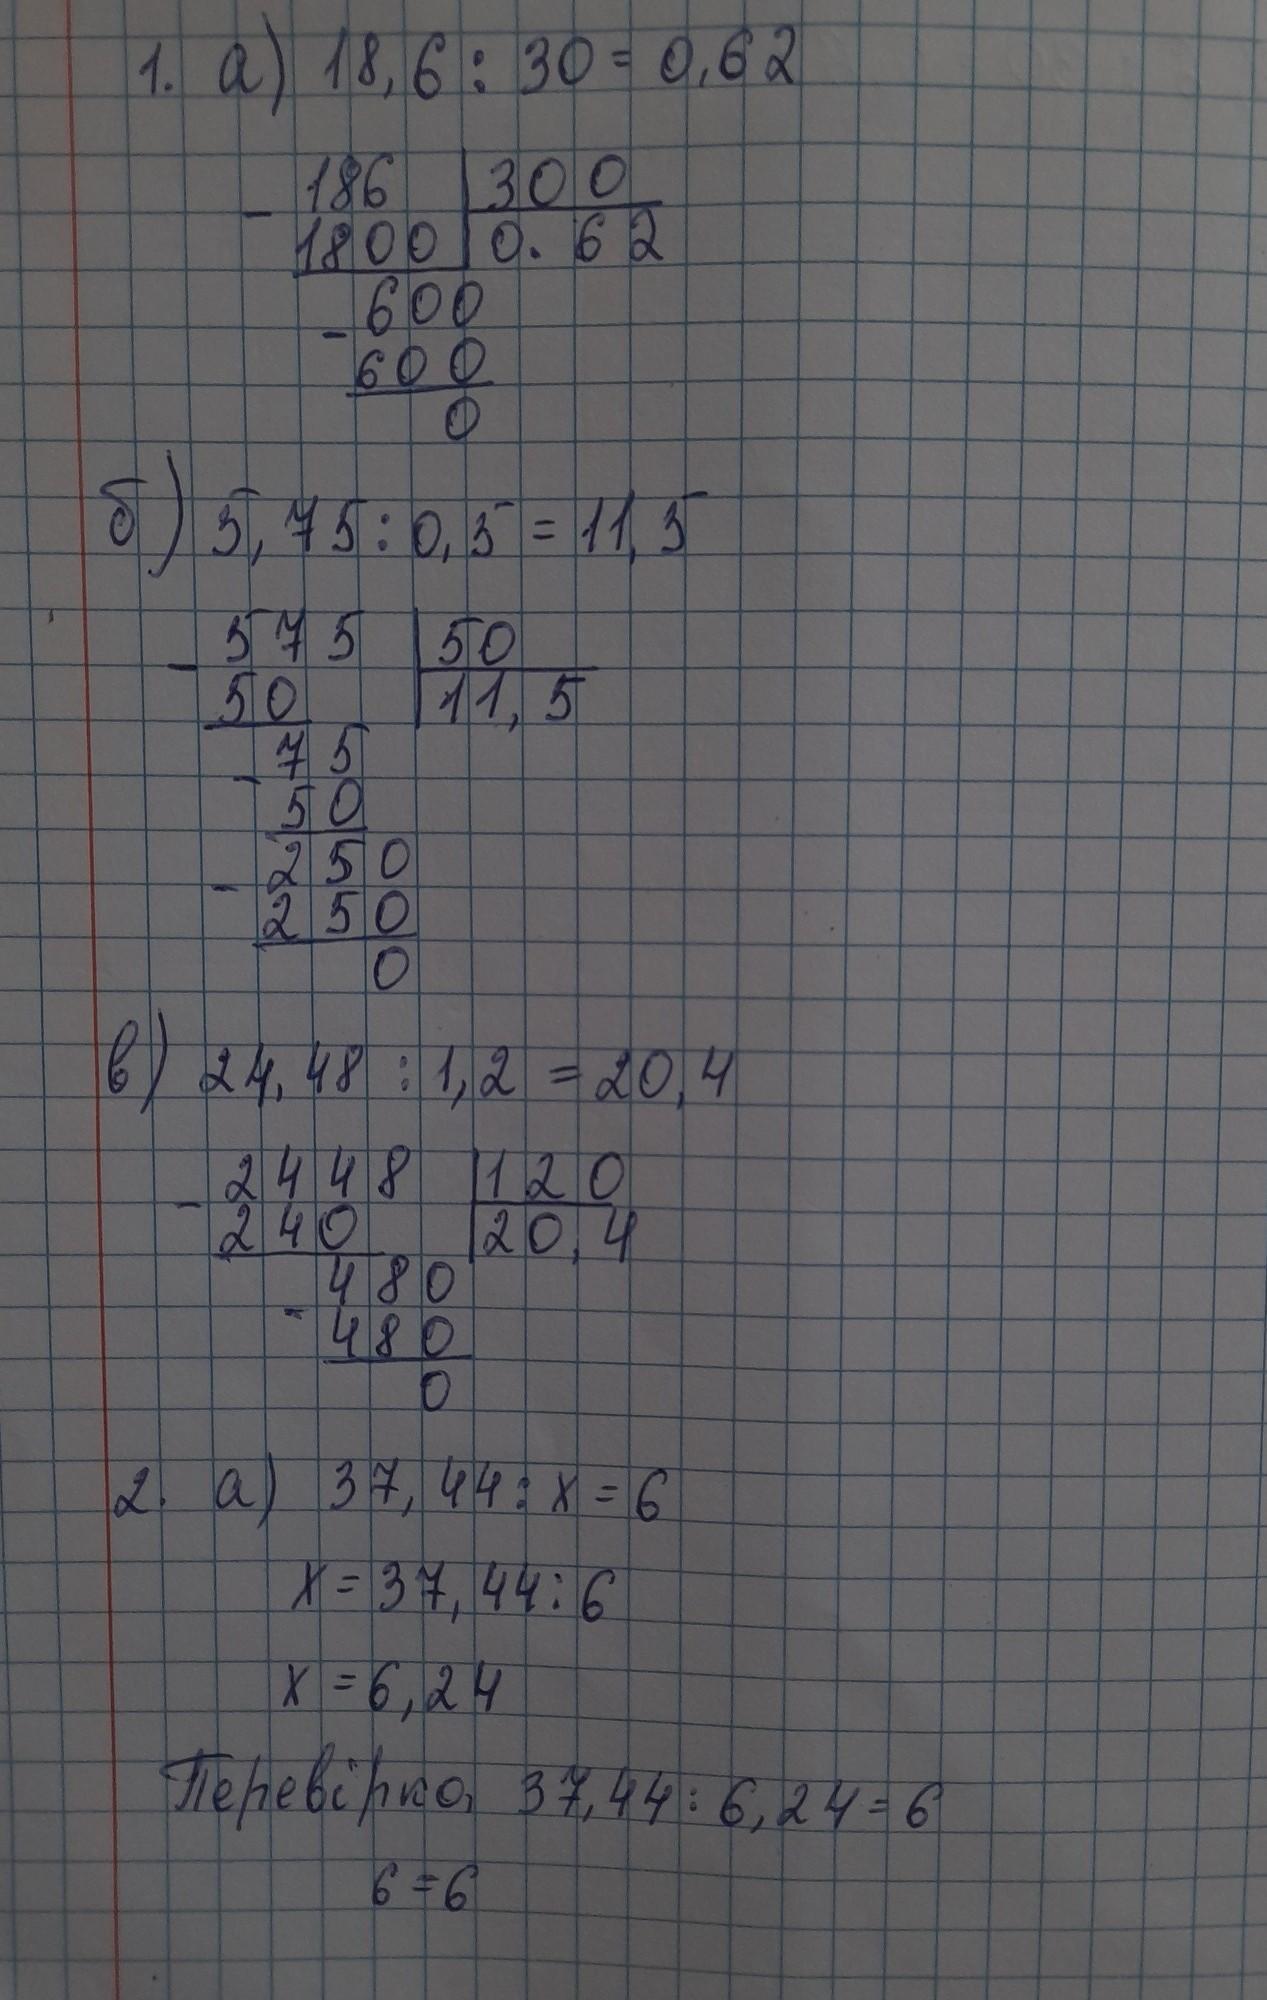 1. а) 18,6 : 30 = 0,62
- 186 | 300
1800 | 0.62
- 600
600
0
б) 5,75 : 0,5 = 11,5
- 575 | 50
50 | 11,5
- 75
50
- 250
250
0
в) 24,48 : 1,2 = 20,4
- 2448 | 120
240 | 20,4
- 480
480
0
2. а) 37,44 : х = 6
х = 37,44 : 6
х = 6,24
Перевірка, 37,44 : 6,24 = 6
6 = 6